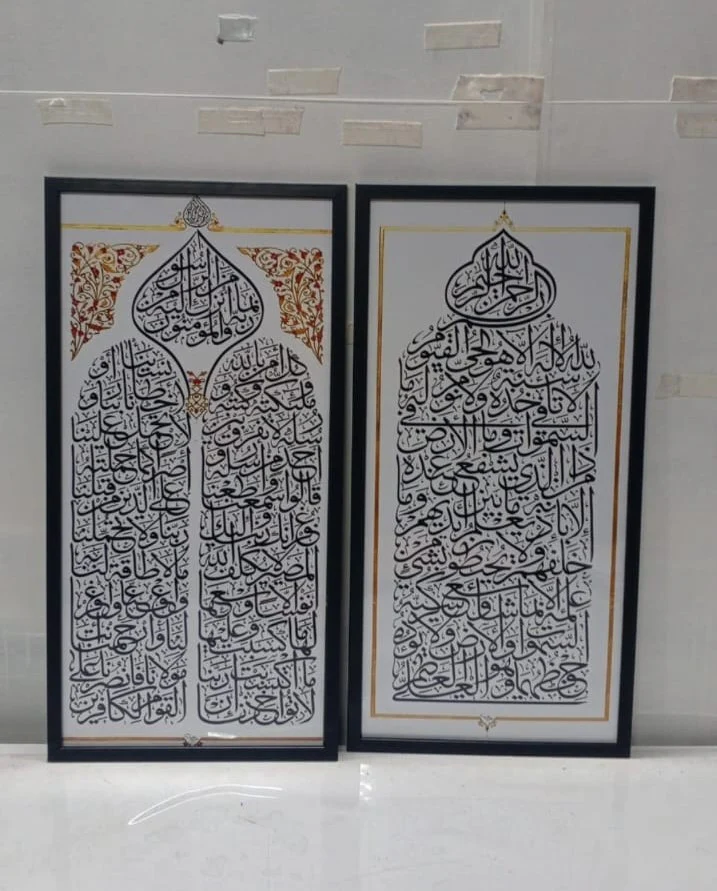 بسم الله الرحمن الرحيم
الله لا إله إلا هو الحي القيوم
لا تأخذه سنة ولا نوم له ما
في السموات وما في الأرض من
ذا الذي يشفع عنده
إلا بإذنه يعلم ما بين أيديهم وما
خلفهم ولا يحيطون بشيء من
علمه إلا بما شاء وسع كرسيه
السموات والأرض ولا يؤوده
حفظهما وهو العلي العظيم
آمن الرسول بما أنزل إليه من ربه والمؤمنون
كل آمن بالله
وملئكته وكتبه و
رسله لا نفرق بين
أحد من رسله و
قالوا سمعنا وأطعنا
غفرانك ربنا وإليك
المصير لا يكلف الله
نفسا إلا وسعها
لها ما كسبت وعليها
ما اكتسبت ربنا
لا تؤاخذنا إن
نسينا أو
أخطأنا ربنا و
لا تحمل علينا
إصرا كما حملته
على الذين من قبلنا
ربنا ولا تحملنا
ما لا طاقة لنا به
واعف عنا واغفر
لنا وارحمنا أنت
مولانا فانصرنا على
القوم الكافرين